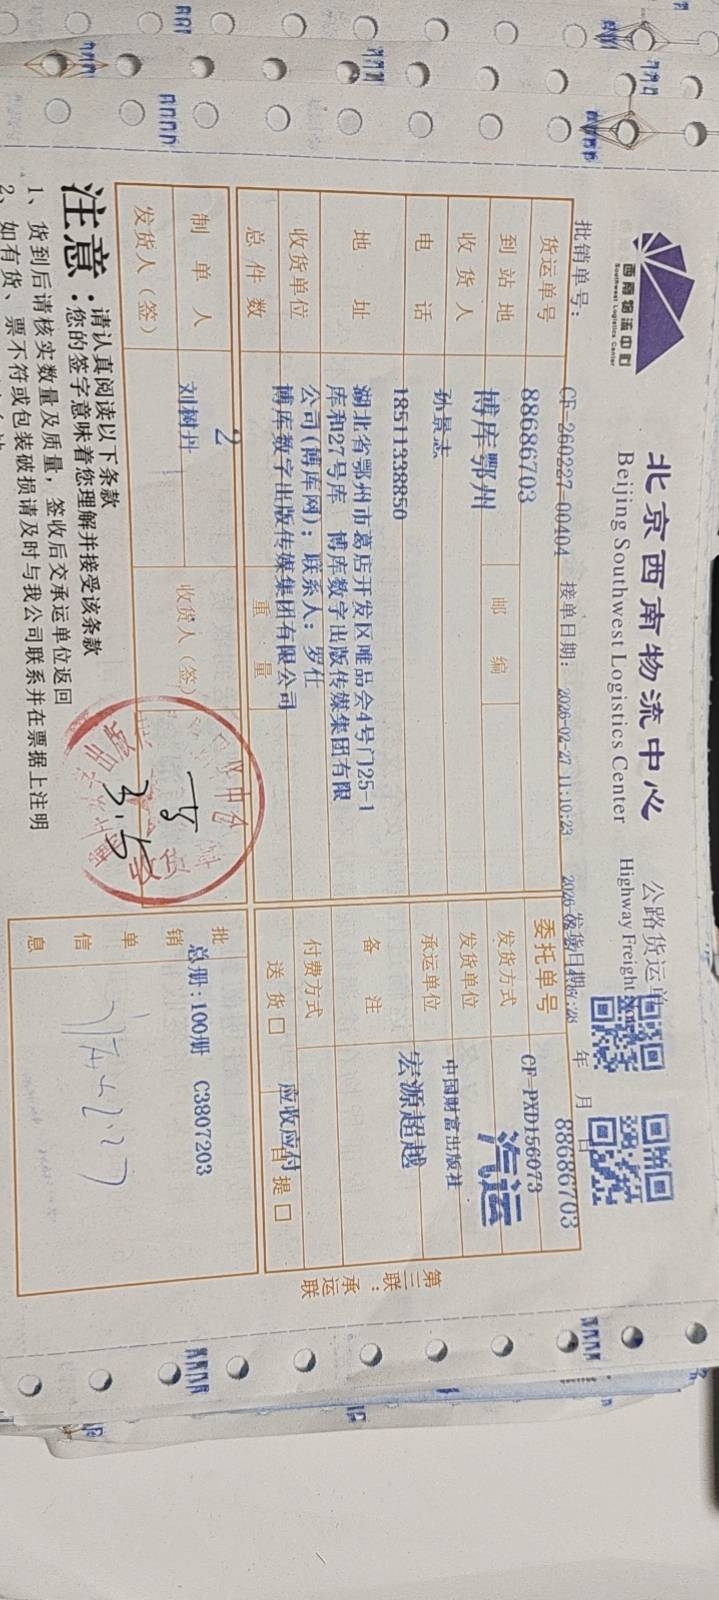 西南物流中心
Southwest Logistics Center
北京西南物流中心 公路货运单
Beijing Southwest Logistics Center Highway Freight
年 月 日
批销单号: CF-260227-00404 接单日期: 2026-02-27 11:10:23 发货日期:
货运单号 88686703 委托单号 88686703
CF-PXD156073
到站地 博库鄂州 邮编 发货方式 汽运
收货人 孙景志 发货单位 中国财富出版社
电话 18511338850 承运单位 宏源超越
地址 湖北省鄂州市葛店开发区唯品会4号门25-1
库和27号库 博库数字出版传媒集团有限
公司(博库网); 联系人: 罗仕
备注
收货单位 博库数字出版传媒集团有限公司 付费方式 应收应付
总件数 2 重量 送货□ 自提□
制单人 刘树丹 收货人(签)
发货人(签)
批销单信息 总册:100册 C3807203
第三联:承运联
注意: 请认真阅读以下条款
您的签字意味着您理解并接受该条款
1、货到后请核实数量及质量, 签收后交承运单位返回
2、如有货、票不符或包装破损请及时与我公司联系并在票据上注明